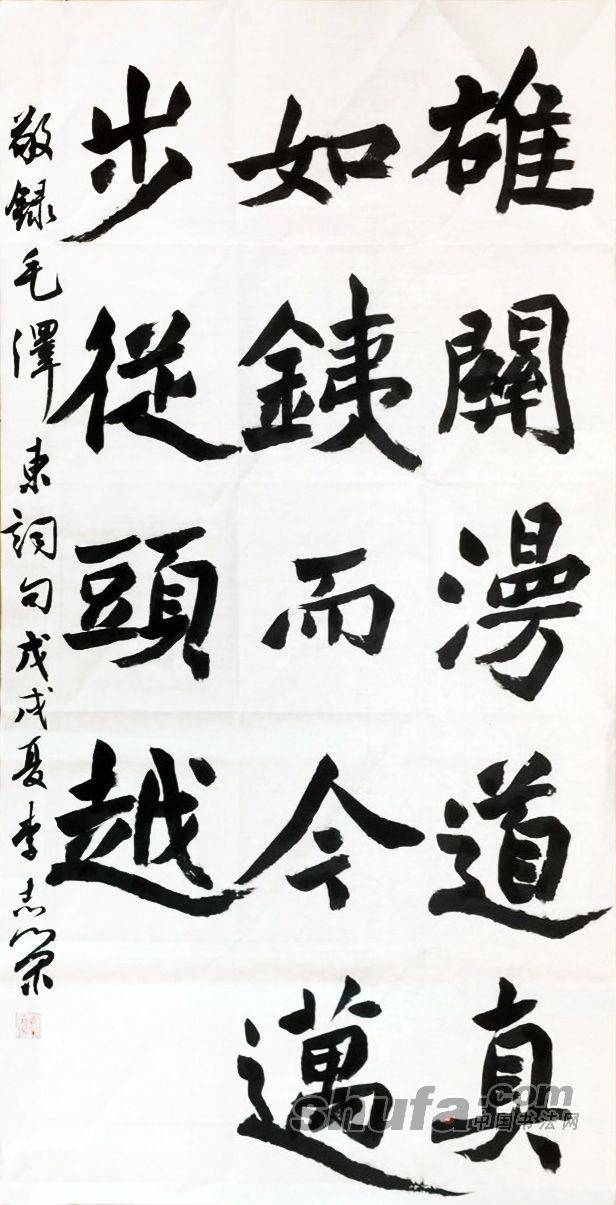 雄關漫道真
如銕而今邁
步從頭越
敬録毛澤東詞句戊戌夏李志榮
shufa.com
中国书法网